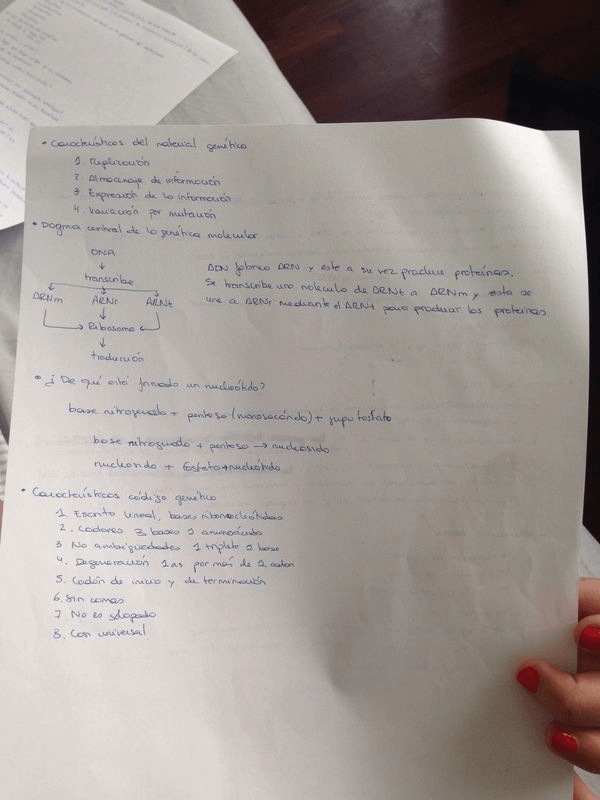 • Características del material genético
1. Replicación
2. Almacenaje de información
3. Expresión de la información
4. Variación por mutación
• Dogma central de la genética molecular
DNA
↓
transcribe
ARNm ARNr ARNt
Ribosoma
↓
traducción
ADN fabrica ARN y este a su vez produce proteínas.
Se transcribe una molecula de ARNt a ARNm y esta se
une a ARNr mediante el ARNt para producir las proteínas
• ¿De qué está formado un nucleótido?
base nitrogenada + pentosa (monosacárido) + grupo fosfato
base nitrogenada + pentosa → nucleosido
nucleosido + fosfato → nucleótido
• Características código genético
1 Escrito lineal, bases ribonucleótidos
2. Codones 3 bases 1 aminoácido
3 No ambigüedades 1 triplete 1 base
4. Degeneración 1 aa por más de 1 codon
5. Codón de inicio y de terminación
6. Sin comas
7. No es solapado
8. Casi universal